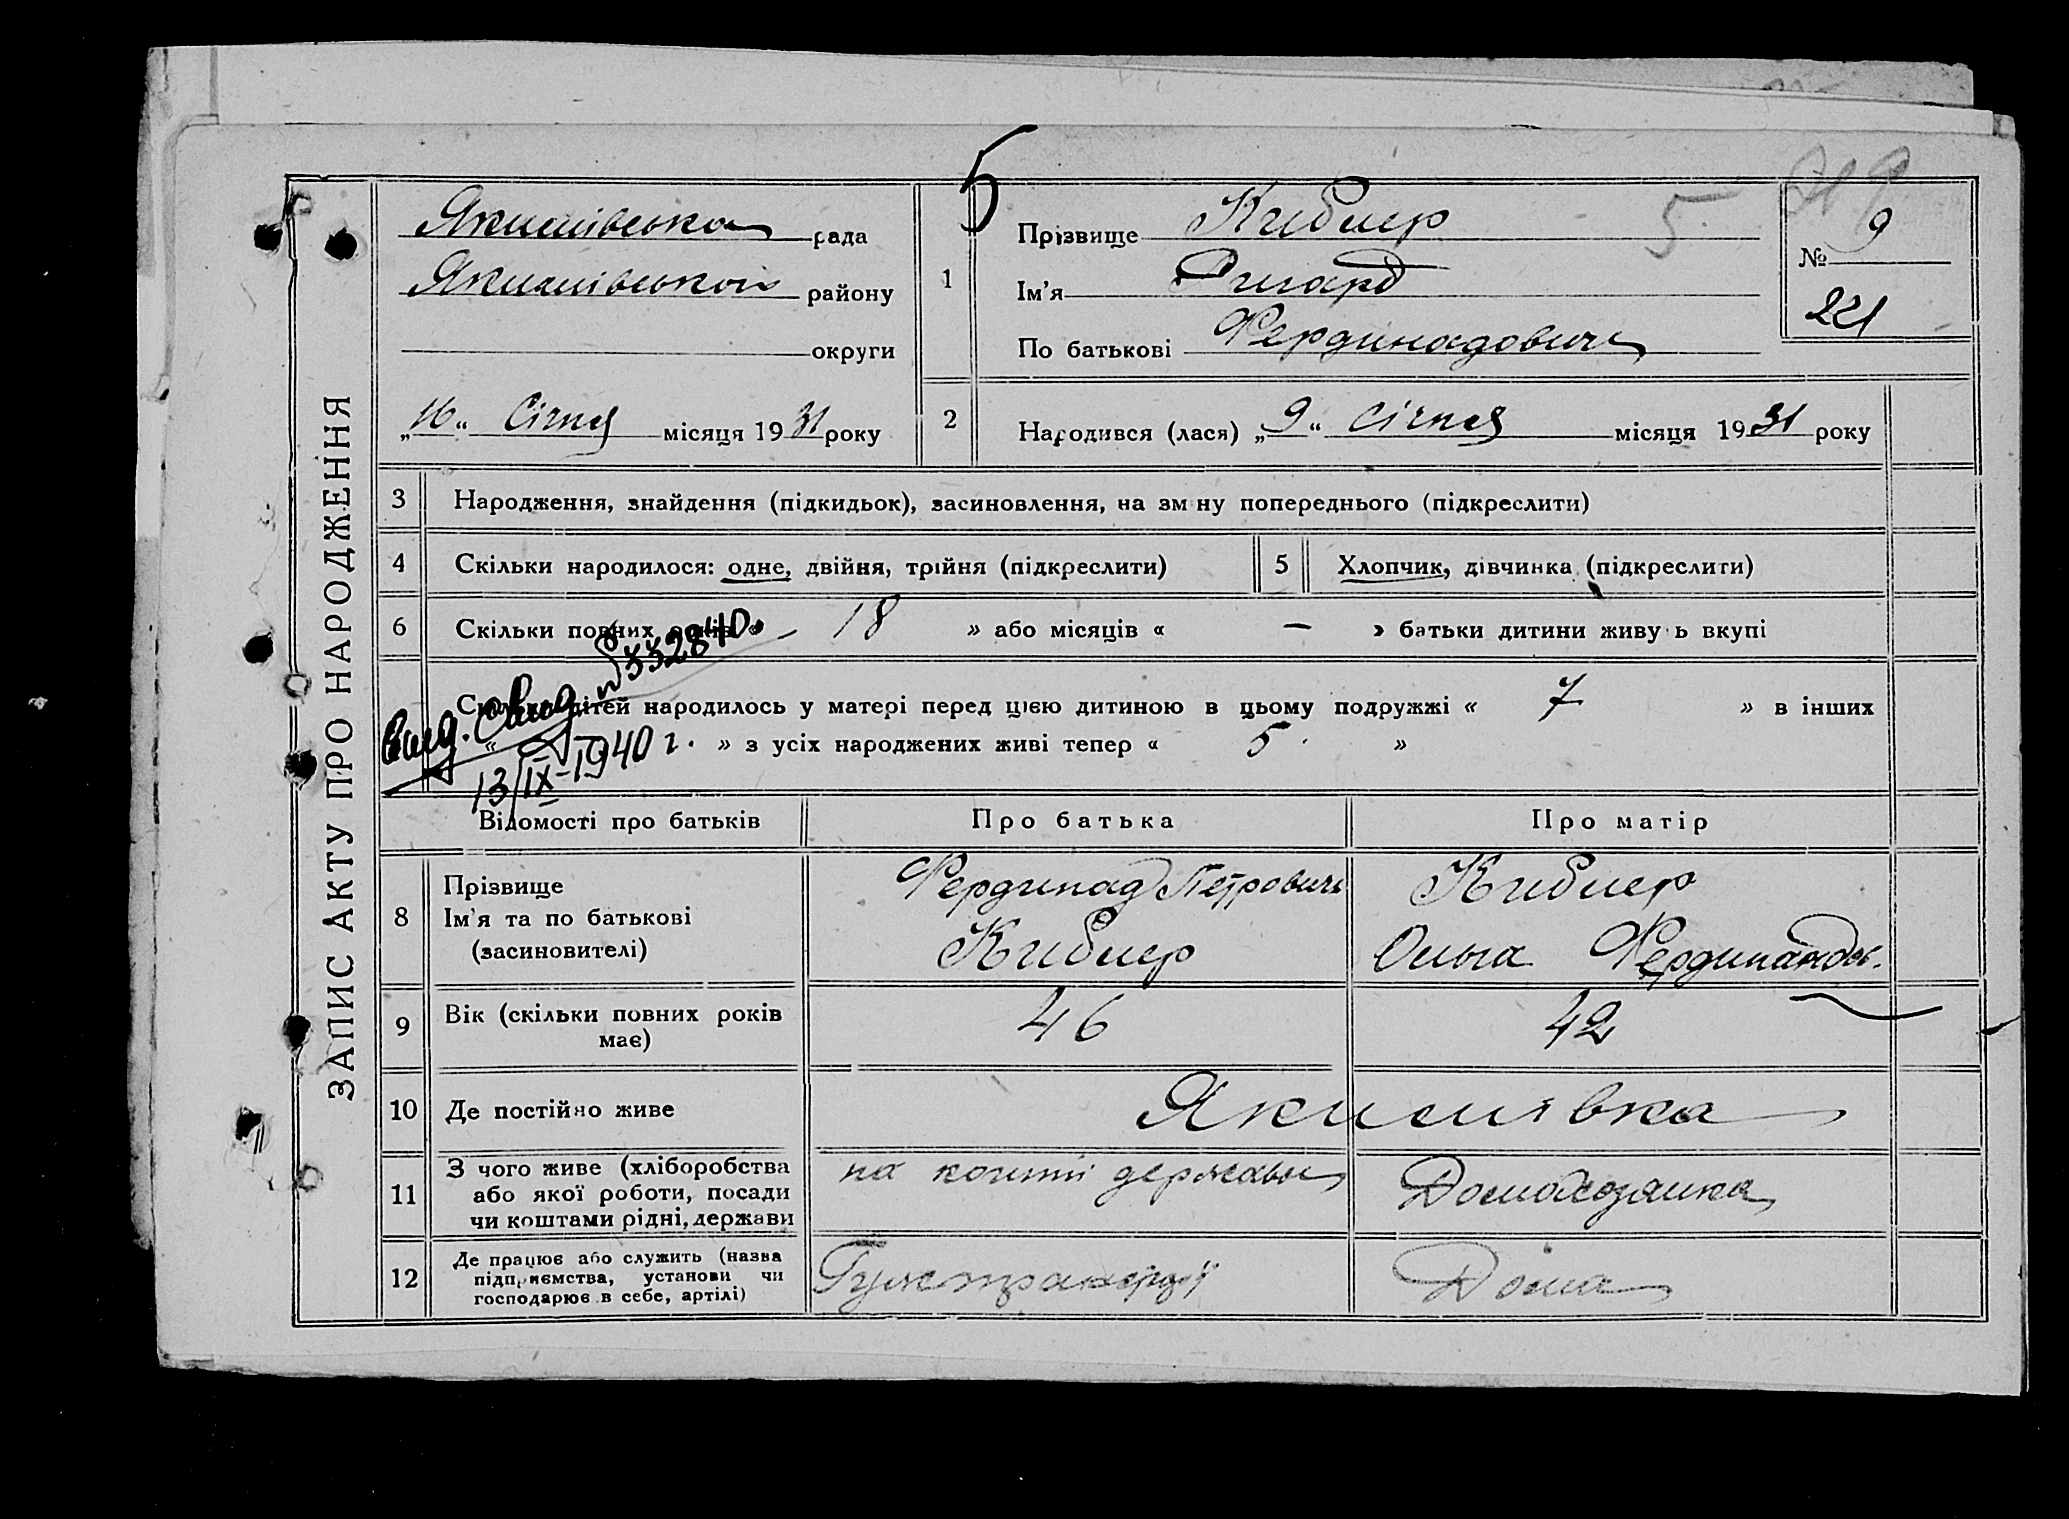 ЗАПИС АКТУ ПРО НАРОДЖЕННЯ
5
Якимівська рада
Якимівського району
округи
„16“ Січня місяця 1931 року
1
Прізвище Киблер
Ім'я Рихард
По батькові Фердинадович
5
№ 9
221
2
Народився (лася) „9“ січня місяця 1931 року
3 Народження, знайдення (підкидьок), засиновлення, на зміну попереднього (підкреслити)
4 Скільки народилося: одне, двійня, трійня (підкреслити)
5 Хлопчик, дівчинка (підкреслити)
6 Скільки повних років « 18 » або місяців « — » батьки дитини живуть вкупі
Скільки дітей народилось у матері перед цією дитиною в цьому подружжі « 7 » в інших
« » з усіх народжених живі тепер « 5 »
выд. свид. № 332840
13/IX-1940 г.
Відомості про батьків
Про батька
Про матір
8 Прізвище
Ім'я та по батькові
(засиновителі)
Фердинад Петрович
Киблер
Киблер
Ольга Фердинандов.
9 Вік (скільки повних років
має)
46
42
10 Де постійно живе
Якимівка
11 З чого живе (хліборобства
або якої роботи, посади
чи коштами рідні, держави
на кошти держави
Домохозяика
12 Де працює або служить (назва
підприємства, установи чи
господарює в себе, артілі)
Дома